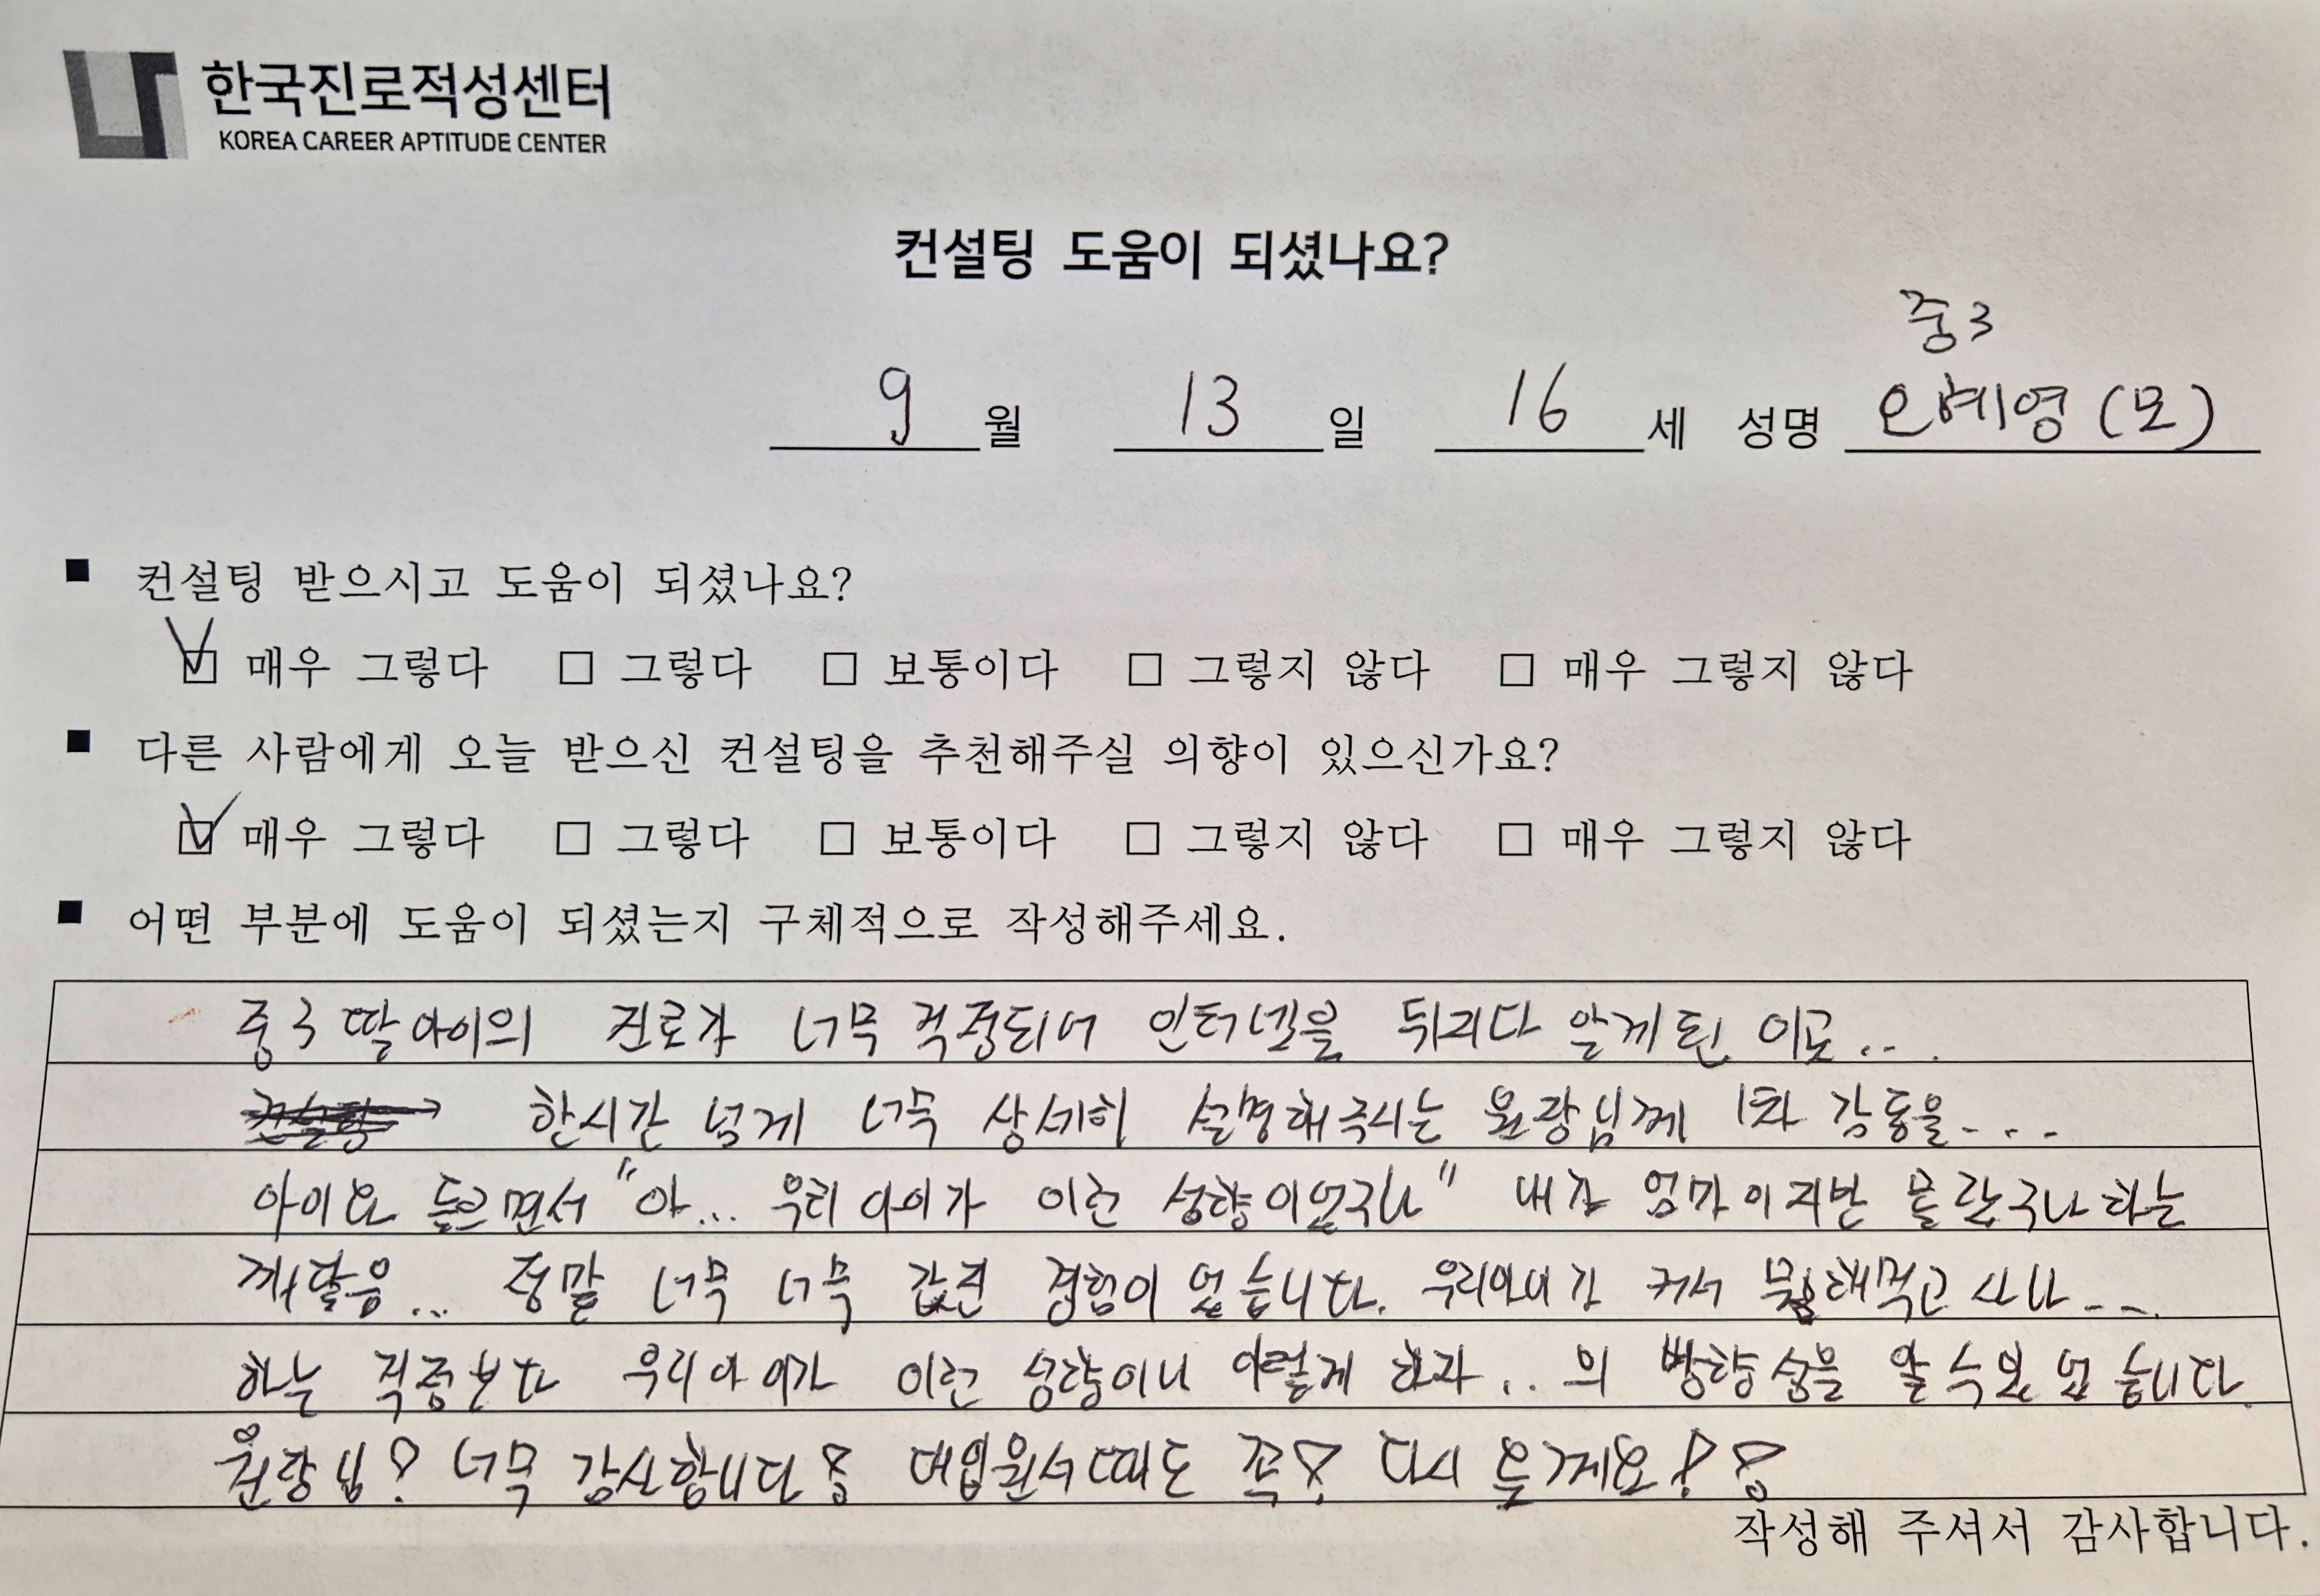 한국진로적성센터
KOREA CAREER APTITUDE CENTER
컨설팅 도움이 되셨나요?
중3
9월 13일 16세 성명 오혜영 (모)
■ 컨설팅 받으시고 도움이 되셨나요?
☑ 매우 그렇다 □ 그렇다 □ 보통이다 □ 그렇지 않다 □ 매우 그렇지 않다
■ 다른 사람에게 오늘 받으신 컨설팅을 추천해주실 의향이 있으신가요?
☑ 매우 그렇다 □ 그렇다 □ 보통이다 □ 그렇지 않다 □ 매우 그렇지 않다
■ 어떤 부분에 도움이 되셨는지 구체적으로 작성해주세요.
중3 딸아이의 진로가 너무 걱정되어 인터넷을 뒤지다 알게된 이곳...
한시간 넘게 너무 상세히 설명해주시는 원장님께 1차 감동을...
아이와 들으면서 "아... 우리 아이가 이런 성향이었구나" 내가 엄마이지만 몰랐구나 하는
깨달음... 정말 너무 너무 값진 경험이 었습니다. 우리아이가 커서 뭘해먹고 사나...
하는 걱정보다 우리아이가 이런 성향이니 이렇게 하자... 의 방향성을 알수 있었습니다.
원장님! 너무 감사합니다! 대입원서때도 꼭! 다시 올게요!!
작성해 주셔서 감사합니다.